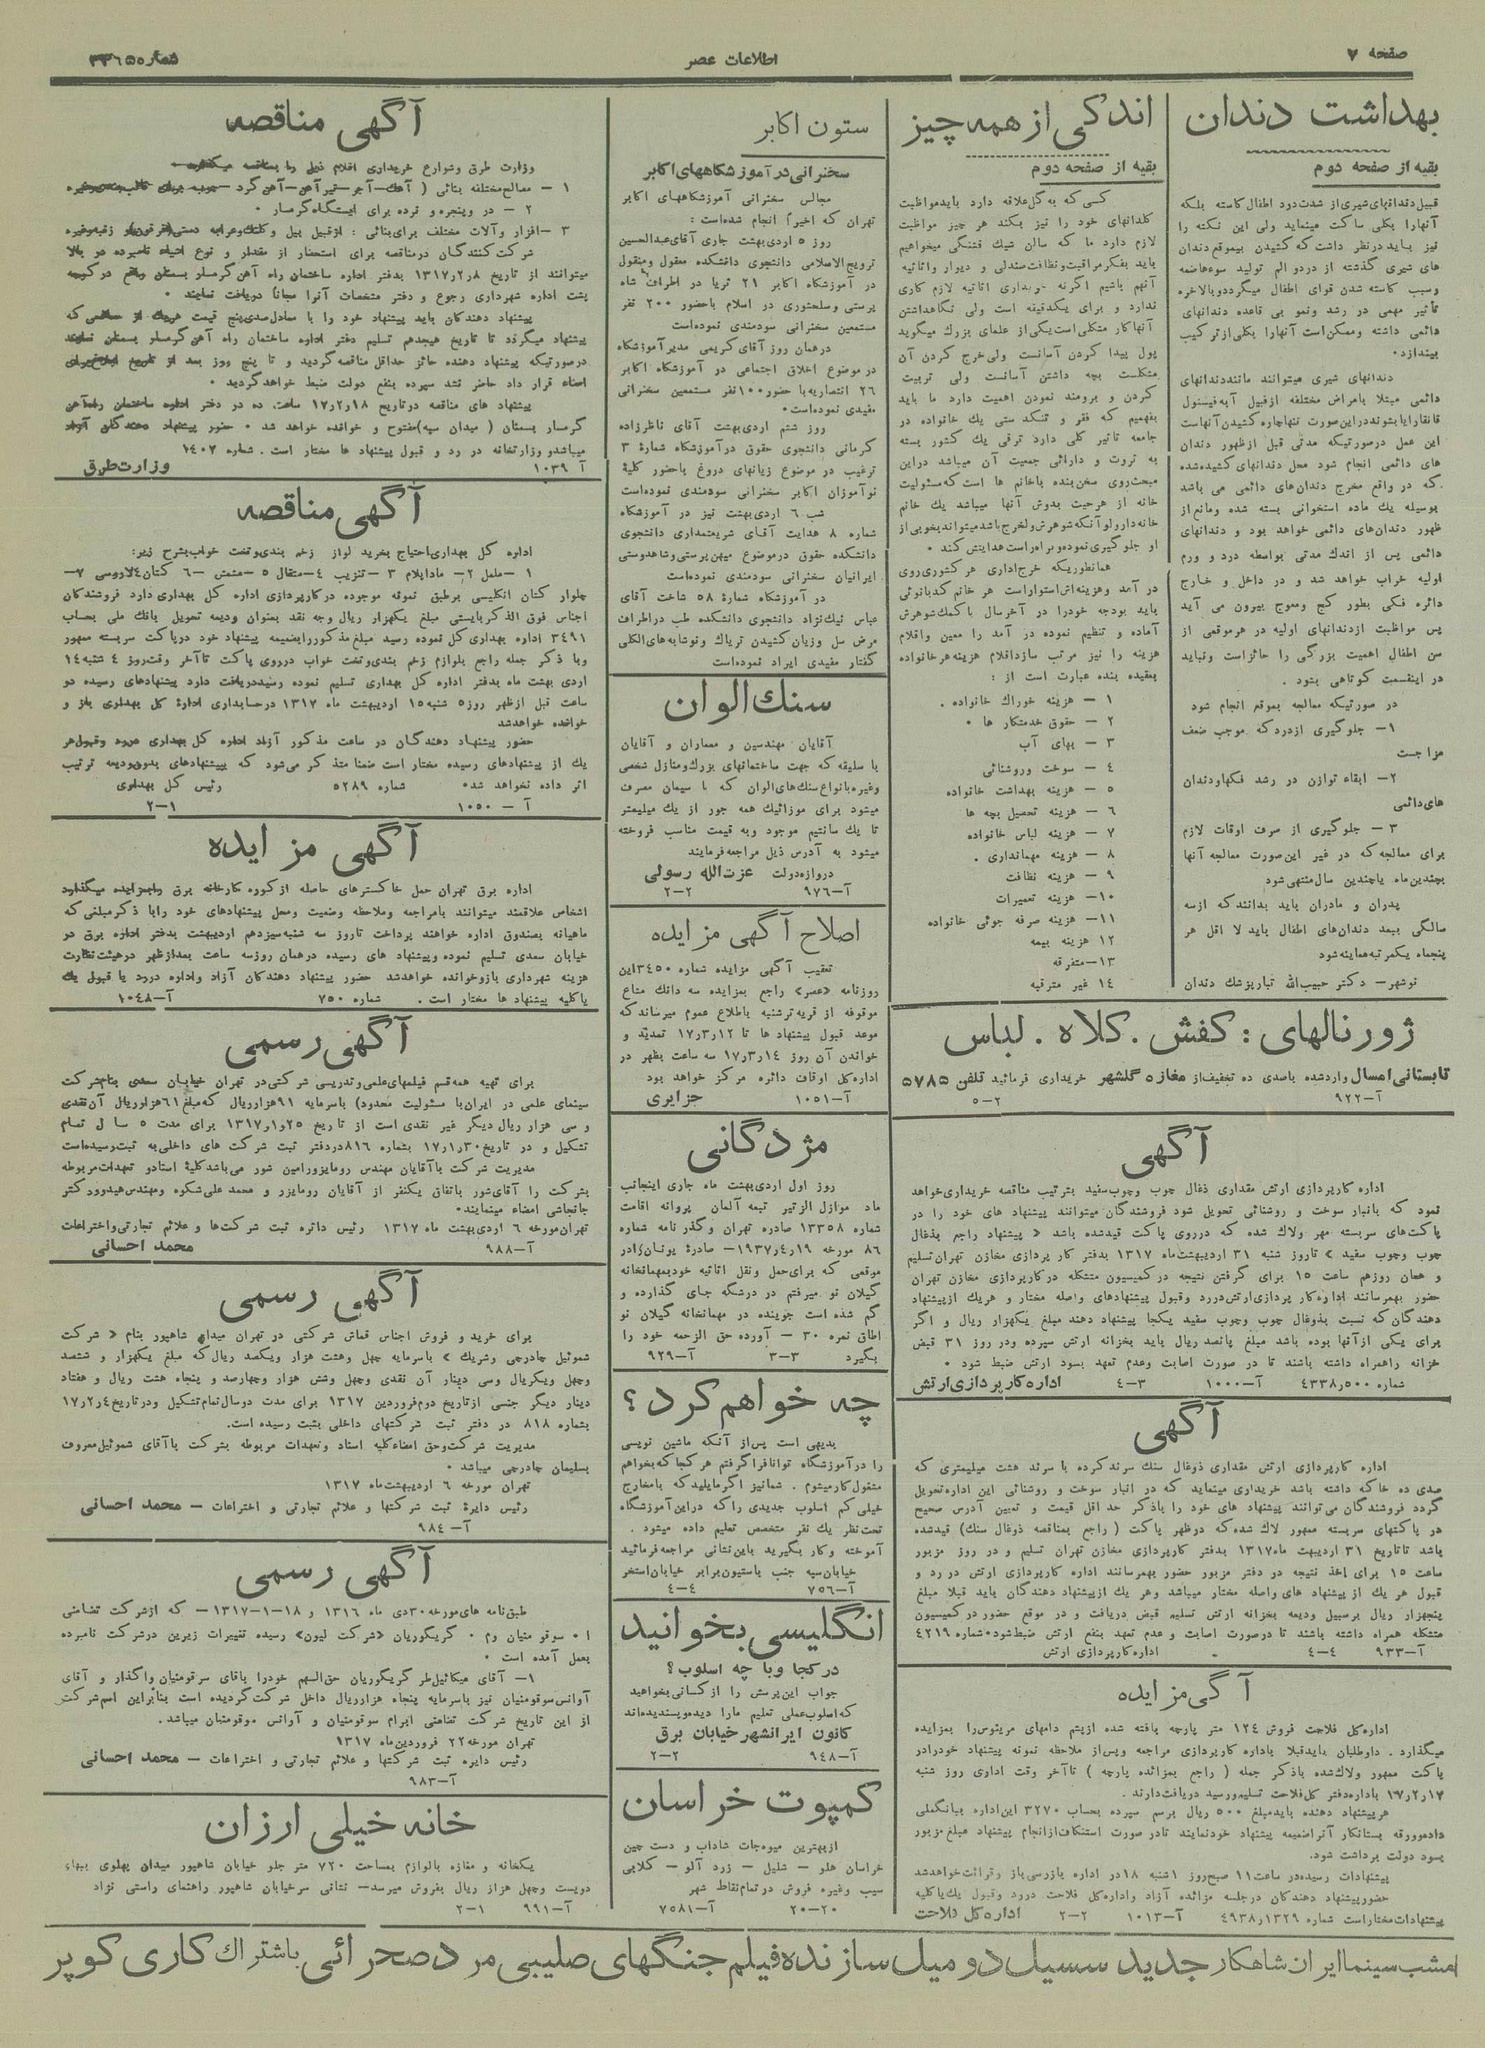 صفحه ۷
اطلاعات عصر
بهداشت دندان
بقیه از صفحه دوم
قبیل دندانهای شیری از شدت درد اطفال کاسته بلکه
آنها را بکلی ساکت مینماید ولی این نکته را
نیز باید در نظر داشت که کشیدن بیموقع دندان
های شیری گذشته از درد و الم تولید سوء هاضمه
وسبب کاسته شدن قوای اطفال میگردد وبالاخره
تأثیر مهمی در رشد ونمو بی قاعده دندانهای
دائمی داشته وممکن است آنها را بکلی از ترکیب
بیندازد•
دندانهای شیری میتوانند مانند دندانهای
دائمی مبتلا بامراض مختلفه از قبیل آبه فیستول
این عمل در صورتیکه مدتی قبل از ظهور دندان
های دائمی انجام شود محل دندانهای کشیده شده
که در واقع مخرج دندان های دائمی می باشد
بوسیله یك ماده استخوانی بسته شده ومانع از
ظهور دندان های دائمی خواهد بود و دندانهای
دائمی پس از اندك مدتی بواسطه درد و ورم
اولیه خراب خواهد شد و در داخل و خارج
دائره فکی بطور کج ومعوج بیرون می آید
پس مواظبت از دندانهای اولیه در هر موقعی از
سن اطفال اهمیت بزرگی را حائز است ونباید
در اینقسمت کوتاهی بشود .
در صورتیکه معالجه بموقع انجام شود
۱– جلوگیری از درد که موجب ضعف
مزاجست
۲– ابقاء توازن در رشد فکها ودندان
های دائمی
۳ – جلوگیری از صرف اوقات لازم
برای معالجه که در غیر این صورت معالجه آنها
بچندین ماه یا چندین سال منتهی شود
پدران و مادران باید بدانند که از سه
سالگی ببعد دندان های اطفال باید لا اقل هر
پنجماه یکمرتبه معاینه شود
نوشهر– دکتر حبیب الله تبار پزشك دندان
اندکی از همه چیز
بقیه از صفحه دوم
کسی که به گل علاقه دارد باید مواظبت
گلدانهای خود را نیز بکند هر چیز مواظبت
لازم دارد ما که سالن شیك قشنگی میخواهیم
باید بفکر مراقبت ونظافت صندلی و دیوار واثاثیه
آنهم باشیم اگر نه خریداری اثاثیه لازم کاری
ندارد و برای یکدقیقه است ولی نگاهداشتن
آنها کار مشکلی است یکی از علمای بزرگ میگوید
پول پیدا کردن آسانست ولی خرج کردن آن
مشکلست بچه داشتن آسانست ولی تربیت
کردن و برومند نمودن اهمیت دارد ما باید
بفهمیم که فقر و تنگدستی یك خانواده در
جامعه تأثیر کلی دارد ترقی یك کشور بسته
به ثروت و دارائی جمعیت آن میباشد در این
مبحث روی سخن بنده با خانم ها است که مسئولیت
خانه از هر حیث بدوش آنها میباشد یك خانم
خانه دار ولو آنکه شوهرش ولخرج باشد میتواند بخوبی از
او جلوگیری نموده و براه راست هدایتش کند •
همانطوریکه خرج اداری هر کشوری روی
در آمد وهزینه اش استوار است هر خانم کدبانوئی
باید بودجه خود را در آخر سال با کمك شوهرش
آماده و تنظیم نموده در آمد را معین واقلام
هزینه را نیز مرتب سازد اقلام هزینه هر خانواده
بعقیده بنده عبارت است از :
۱ – هزینه خوراك خانواده .
۲ – حقوق خدمتکار ها •
۳ – بهای آب
۴ – سوخت وروشنائی
۵ – هزینه بهداشت خانواده
۶ – هزینه تحصیل بچه ها
۷ – هزینه لباس خانواده
۸ – هزینه مهمانداری .
۹ – هزینه نظافت
۱۰– هزینه تعمیرات
۱۱– هزینه صرفه جوئی خانواده
۱۲ هزینه بیمه
۱۳–متفرقه
۱۴ غیر مترقبه
ژورنالهای : کفش . کلاه . لباس
تابستانی امسال وارد شده با صدی ده تخفیف از مغازه گلشهر خریداری فرمائید تلفن ۵۷۸۵
آ–۹۲۲ ۲–۵
آگهی
اداره کارپردازی ارتش مقداری ذغال چوب وچوب سفید بترتیب مناقصه خریداری خواهد
نمود که بانبار سوخت و روشنائی تحویل شود فروشندگان میتوانند پیشنهاد های خود را در
پاکت های سربسته مهر ولاك شده که در روی پاکت قید شده باشد « پیشنهاد راجع بذغال
چوب وچوب سفید » تا روز شنبه ۳۱ اردیبهشت ماه ۱۳۱۷ بدفتر کار پردازی مخازن تهران تسلیم
و همان روز هم ساعت ۱۵ برای گرفتن نتیجه در کمیسیون متشکله در کارپردازی مخازن تهران
حضور بهمرسانند اداره کار پردازی ارتش در رد وقبول پیشنهادهای واصله مختار و هر یك از پیشنهاد
دهندگان که نسبت بذوغال چوب وچوب سفید یکجا پیشنهاد دهند مبلغ یکهزار ریال و اگر
برای یکی از آنها بوده باشد مبلغ پانصد ریال باید بخزانه ارتش سپرده ودر روز ۳۱ قبض
خزانه را همراه داشته باشند تا در صورت اصابت وعدم تعهد بسود ارتش ضبط شود •
شماره ۵۰۰ر۴۳۳۸ آ–۱۰۰۰ ۳–۴ اداره کارپردازی ارتش
آگهی
اداره کارپردازی ارتش مقداری ذوغال سنك سرند کرده با سرند هشت میلیمتری که
صدی ده خاکه داشته باشد خریداری مینماید که در انبار سوخت و روشنائی این اداره تحویل
گردد فروشندگان می توانند پیشنهاد های خود را با ذکر حد اقل قیمت و تعیین آدرس صحیح
در پاکتهای سربسته ممهور لاك شده که در ظهر پاکت ( راجع بمناقصه ذوغال سنك) قید شده
باشد تا تاریخ ۳۱ اردیبهشت ماه ۱۳۱۷ بدفتر کارپردازی مخازن تهران تسلیم و در روز مزبور
ساعت ۱۵ برای اخذ نتیجه در دفتر مزبور حضور بهمرسانند اداره کارپردازی ارتش در رد و
قبول هر یك از پیشنهاد های واصله مختار میباشد وهر یك از پیشنهاد دهندگان باید قبلا مبلغ
پنجهزار ریال برسبیل ودیعه بخزانه ارتش تسلیم قبض دریافت و در موقع حضور در کمیسیون
متشکله همراه داشته باشند تا در صورت اصابت و عدم تعهد بنفع ارتش ضبط شود• شماره ۴۲۱۹
آ–۹۳۳ ۴–۴ اداره کارپردازی ارتش
آگهی مزایده
اداره کل فلاحت فروش ۱۲۴ متر پارچه بافته شده از پشم دامهای مرینوس را بمزایده
میگذارد . داوطلبان باید قبلا باداره کارپردازی مراجعه وپس از ملاحظه نمونه پیشنهاد خود را در
پاکت ممهور ولاك شده با ذکر جمله ( راجع بمزائده پارچه ) تا آخر وقت اداری روز شنبه
۱۷ر۲ر۱۷ باداره دفتر کل فلاحت تسلیم ورسید دریافت دارند .
هر پیشنهاد دهنده باید مبلغ ۵۰۰ ریال برسم سپرده بحساب ۳۲۷۰ این اداره ببانك ملی
داده وورقه بستانکار آنرا ضمیمه پیشنهاد خود نمایند تا در صورت استنکاف از انجام پیشنهاد مبلغ مزبور
بسود دولت برداشت شود.
پیشنهادات رسیده در ساعت ۱۱ صبح روز ۱ شنبه ۱۸ در اداره بازرسی باز وقرائت خواهد شد
حضور پیشنهاد دهندگان در جلسه مزائده آزاد واداره کل فلاحت در رد وقبول یك یا کلیه
پیشنهادات مختار است شماره ۱۳۲۹ر۴۹۳۸ آ–۱۰۱۳ ۲–۲ اداره کل فلاحت
ستون اکابر
سخنرانی در آموزشگاههای اکابر
مجالس سخنرانی آموزشگاههای اکابر
تهران که اخیراً انجام شده است:
روز ۵ اردی بهشت جاری آقای عبدالحسین
ترویج الاسلامی دانشجوی دانشکده معقول ومنقول
در آموزشگاه اکابر ۲۱ ثریا در اطراف شاه
پرستی وسلحشوری در اسلام با حضور ۲۰۰ نفر
مستمعین سخنرانی سودمندی نموده است
در همان روز آقای کریمی مدیر آموزشگاه
در موضوع اخلاق اجتماعی در آموزشگاه اکابر
۲۶ انتصاریه با حضور ۱۰۰ نفر مستمعین سخنرانی
مفیدی نموده است•
روز ششم اردی بهشت آقای ناظرزاده
کرمانی دانشجوی حقوق در آموزشگاه شمارهٔ ۳
ترغیب در موضوع زیانهای دروغ با حضور کلیهٔ
نو آموزان اکابر سخنرانی سودمندی نموده است
شب ۶ اردی بهشت نیز در آموزشگاه
شماره ۸ هدایت آقای شریعتمداری دانشجوی
دانشکده حقوق در موضوع میهن پرستی وشاهدوستی
ایرانیان سخنرانی سودمندی نموده است
در آموزشگاه شمارهٔ ۵۸ شاخت آقای
عباس نیك نژاد دانشجوی دانشکده طب در اطراف
مرض سل وزیان کشیدن تریاك ونوشابه های الکلی
گفتار مفیدی ایراد نموده است
سنك الوان
آقایان مهندسین و معماران و آقایان
با سلیقه که جهت ساختمانهای بزرك ومنازل شخصی
وغیره بانواع سنك های الوان که با سیمان مصرف
میشود برای موزائیك همه جور از یك میلیمتر
تا یك سانتیم موجود وبه قیمت مناسب فروخته
میشود به آدرس ذیل مراجعه فرمایند
دروازه دولت عزت الله رسولی
آ–۹۷۶ ۲–۲
اصلاح آگهی مزایده
تعقیب آگهی مزایده شماره ۳۴۵۰ این
روزنامه «عصر» راجع بمزایده سه دانك مشاع
موقوفه از قریه ترشنبه باطلاع عموم میرساند که
موعد قبول پیشنهاد ها تا ۱۲ر۳ر۱۷ تمدید و
خواندن آن روز ۱۴ر۳ر۱۷ سه ساعت بظهر در
اداره کل اوقاف دائره مرکز خواهد بود
آ–۱۰۵۱ جزایری
مژدگانی
روز اول اردی بهشت ماه جاری اینجانب
ماد موازل الزتیر تبعه آلمان پروانه اقامت
شماره ۱۳۳۵۸ صادره تهران وگذر نامه شماره
۸۶ مورخه ۱۹ر۴ر۱۹۳۷– صادرهٔ یونان را در
موقعی که برای حمل ونقل اثاثیه خود بمهمانخانه
گیلان نو میرفتم در درشگه جای گذارده و
گم شده است جوینده در مهمانخانه گیلان نو
اطاق نمره ۳۰ – آورده حق الزحمه خود را
بگیرد ۳–۳ آ–۹۲۹
چه خواهم کرد ؟
بدیهی است پس از آنکه ماشین نویسی
را در آموزشگاه توانا فرا گرفتم هر کجا که بخواهم
مشغول کار میشوم . شما نیز اگر مایلید که با مخارج
خیلی کم اسلوب جدیدی را که در این آموزشگاه
تحت نظر یك نفر متخصص تعلیم داده میشود .
آموخته وکار بگیرید باین نشانی مراجعه فرمائید
خیابان سپه جنب باستیون برابر خیابان استخر
آ–۷۵۶ ۴–۴
انگلیسی بخوانید
در کجا وبا چه اسلوب ؟
جواب این پرسش را از کسانی بخواهید
که اسلوب عملی تعلیم ما را دیده وپسندیده اند
کانون ایرانشهر خیابان برق
آ–۹۴۸ ۲–۲
کمپوت خراسان
از بهترین میوه جات شاداب و دست چین
خراسان هلو – شلیل – زرد آلو – گلابی
سیب وغیره فروش در تمام نقاط شهر
آ–۷۵۸۱ ۲۰–۲۰
آگهی مناقصه
وزارت طرق وشوارع خریداری اقلام ذیل را بمناقصه میگذارد
۲ – در وپنجره و نرده برای ایستگاه گرمسار •
شرکت کنندگان در مناقصه برای استحضار از مقدار و نوع اشیاء نامبرده در بالا
میتوانند از تاریخ ۸ر۲ر۱۳۱۷ بدفتر اداره ساختمان راه آهن گرمسار بسمنان واقع در کوچه
پشت اداره شهرداری رجوع و دفتر مشخصات آنرا مجاناً دریافت نمایند •
پیشنهاد میگردد تا تاریخ هیجدهم تسلیم دفتر اداره ساختمان راه آهن گرمسار بسمنان نمایند
امضاء قرار داد حاضر نشد سپرده بنفع دولت ضبط خواهد گردید •
پیشنهاد های مناقصه در تاریخ ۱۸ر۲ر۱۷ ساعت ده در دفتر اداره ساختمان راه آهن
گرمسار بسمنان ( میدان سپه) مفتوح و خوانده خواهد شد • حضور پیشنهاد دهندگان آزاد
میباشد و وزارتخانه در رد و قبول پیشنهاد ها مختار است . شماره ۱۴۰۲
آ ۱۰۳۹ وزارت طرق
آگهی مناقصه
اداره کل بهداری احتیاج بخرید لوازم زخم بندی وتخت خواب بشرح زیر:
چلوار کتان انگلیسی برطبق نمونه موجوده در کارپردازی اداره کل بهداری دارد فروشندگان
اجناس فوق الذکر بایستی مبلغ یکهزار ریال وجه نقد بعنوان ودیعه تحویل بانك ملی بحساب
۳۴۹۱ اداره بهداری کل نموده رسید مبلغ مذکور را بضمیمه پیشنهاد خود در پاکت سربسته ممهور
وبا ذکر جمله راجع بلوازم زخم بندی وتخت خواب در روی پاکت تا آخر وقت روز ۴ شنبه ۱۴
اردی بهشت ماه بدفتر اداره کل بهداری تسلیم نموده رسید دریافت دارد پیشنهادهای رسیده دو
ساعت قبل از ظهر روز ۵ شنبه ۱۵ اردیبهشت ماه ۱۳۱۷ در حسابداری ادارهٔ کل بهداری باز و
خوانده خواهد شد
حضور پیشنهاد دهندگان در ساعت مذکور آزاد اداره کل بهداری در رد وقبول هر
یك از پیشنهادهای رسیده مختار است ضمناً متذکر می شود که بپیشنهادهای بدون ودیعه ترتیب
اثر داده نخواهد شد• شماره ۵۲۸۹ رئیس کل بهداری
آ – ۱۰۵۰ ۱–۲
آگهی مزایده
اداره برق تهران حمل خاکسترهای حاصله از کوره کارخانه برق را بمزایده میگذارد
اشخاص علاقمند میتوانند بامراجعه وملاحظه وضعیت ومحل پیشنهادهای خود را با ذکر مبلغی که
ماهیانه بصندوق اداره خواهند پرداخت تا روز سه شنبه سیزدهم اردیبهشت بدفتر اداره برق در
خیابان سعدی تسلیم نموده وپیشنهاد های رسیده در همان روز سه ساعت بعد از ظهر در هیئت نظارت
هزینه شهرداری باز وخوانده خواهد شد حضور پیشنهاد دهندگان آزاد واداره در رد یا قبول یك
یا کلیه پیشنهاد ها مختار است . شماره ۷۵۰ آ–۱۰۴۸
آگهی رسمی
برای تهیه همه قسم فیلمهای علمی وتدریسی شرکتی در تهران خیابان سعدی بنام شرکت
سینمای علمی در ایران با مسئولیت محدود) با سرمایه ۹۱ هزار ریال که مبلغ ۶۱ هزار ریال آن نقدی
و سی هزار ریال دیگر غیر نقدی است از تاریخ ۲۵ر۱ر۱۳۱۷ برای مدت ۵ سال تمام
تشکیل و در تاریخ ۳۰ر۱ر۱۷ بشماره ۸۱۶ در دفتر ثبت شرکت های داخلی به ثبت رسیده است
مدیریت شرکت با آقایان مهندس رومایزر ورامین شور می باشد کلیهٔ اسناد و تعهدات مربوطه
بشرکت را آقای شور باتفاق یکنفر از آقایان رومایزر و محمد علی شکوه ومهندس هیدوورکتر
جانجاشی امضاء مینمایند•
تهران مورخه ۶ اردی بهشت ماه ۱۳۱۷ رئیس دائره ثبت شرکت ها و علائم تجارتی واختراعات
آ–۹۸۸ محمد احسانی
آگهی رسمی
برای خرید و فروش اجناس قماش شرکتی در تهران میدان شاهپور بنام « شرکت
شموئیل چادرچی وشریك » با سرمایه چهل وهشت هزار ویکصد ریال که مبلغ یکهزار و ششصد
وچهل ویکریال وسی دینار آن نقدی وچهل وشش هزار وچهارصد و پنجاه هشت ریال و هفتاد
دینار دیگر جنسی از تاریخ دوم فروردین ۱۳۱۷ برای مدت دو سال تمام تشکیل ودر تاریخ ۴ر۲ر۱۷
بشماره ۸۱۸ در دفتر ثبت شرکتهای داخلی بثبت رسیده است.
مدیریت شرکت وحق امضاء کلیه اسناد وتعهدات مربوطه بشرکت با آقای شموئیل معروف
بسلیمان چادرچی میباشد •
تهران مورخه ۶ اردیبهشت ماه ۱۳۱۷
رئیس دایرهٔ ثبت شرکتها و علائم تجارتی و اختراعات – محمد احسانی
آ– ۹۸۴
آگهی رسمی
طبق نامه های مورخه ۳۰ دی ماه ۱۳۱۶ و ۱۸–۱–۱۳۱۷– که از شرکت تضامنی
ا • سوقومنیان وم • گریگوریان «شرکت لیون» رسیده تغییرات زیرین در شرکت نامبرده
بعمل آمده است •
۱– آقای میکائیل طر گریگوریان حق السهم خود را بآقای سرقومنیان واگذار و آقای
آوانس سوقومنیان نیز با سرمایه پنجاه هزار ریال داخل شرکت گردیده است بنابراین اسم شرکت
از این تاریخ شرکت تضامنی ابرام سوقومنیان و آوانس سوقومنیان میباشد.
تهران مورخه ۲۲ فروردین ماه ۱۳۱۷
رئیس دایره ثبت شرکتها و علائم تجارتی و اختراعات – محمد احسانی
آ–۹۸۳
خانه خیلی ارزان
یکخانه و مغازه بالوازم بمساحت ۷۲۰ متر جلو خیابان شاهپور میدان پهلوی ببهاء
دویست وچهل هزار ریال بفروش میرسد– نشانی سر خیابان شاهپور راهنمای راستی نژاد
آ–۹۹۱ ۱–۲
امشب سینما ایران شاهکار جدید سسیل دومیل سازنده فیلم جنگهای صلیبی مرد صحرائی باشتراك گاری کوپر